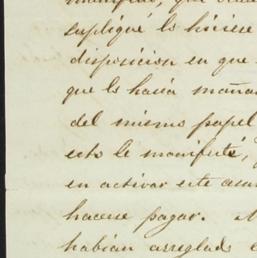 manifesté, que
supliqué lo hiciese
disposicion en que
que lo hacia mañan
del mismo papel
esto le manifesté,
en activar este asun
hacerse pagar.
habian arreglado e